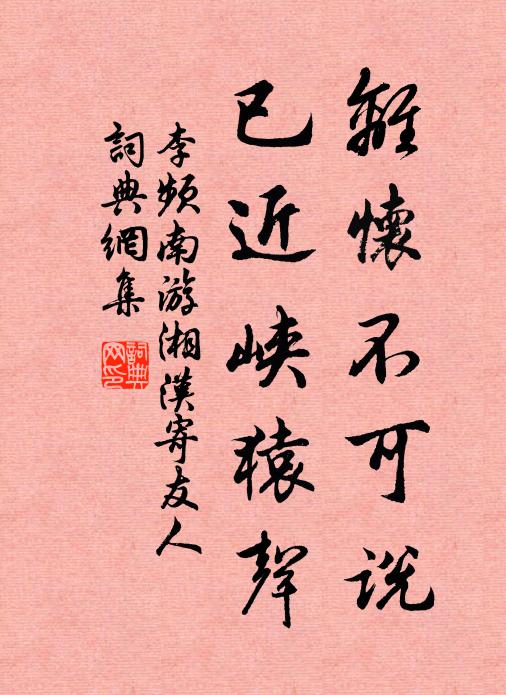 離懷不可說
已近峽猿聲
李頻南游湘漢寄友人
詞典網集
詞典網印